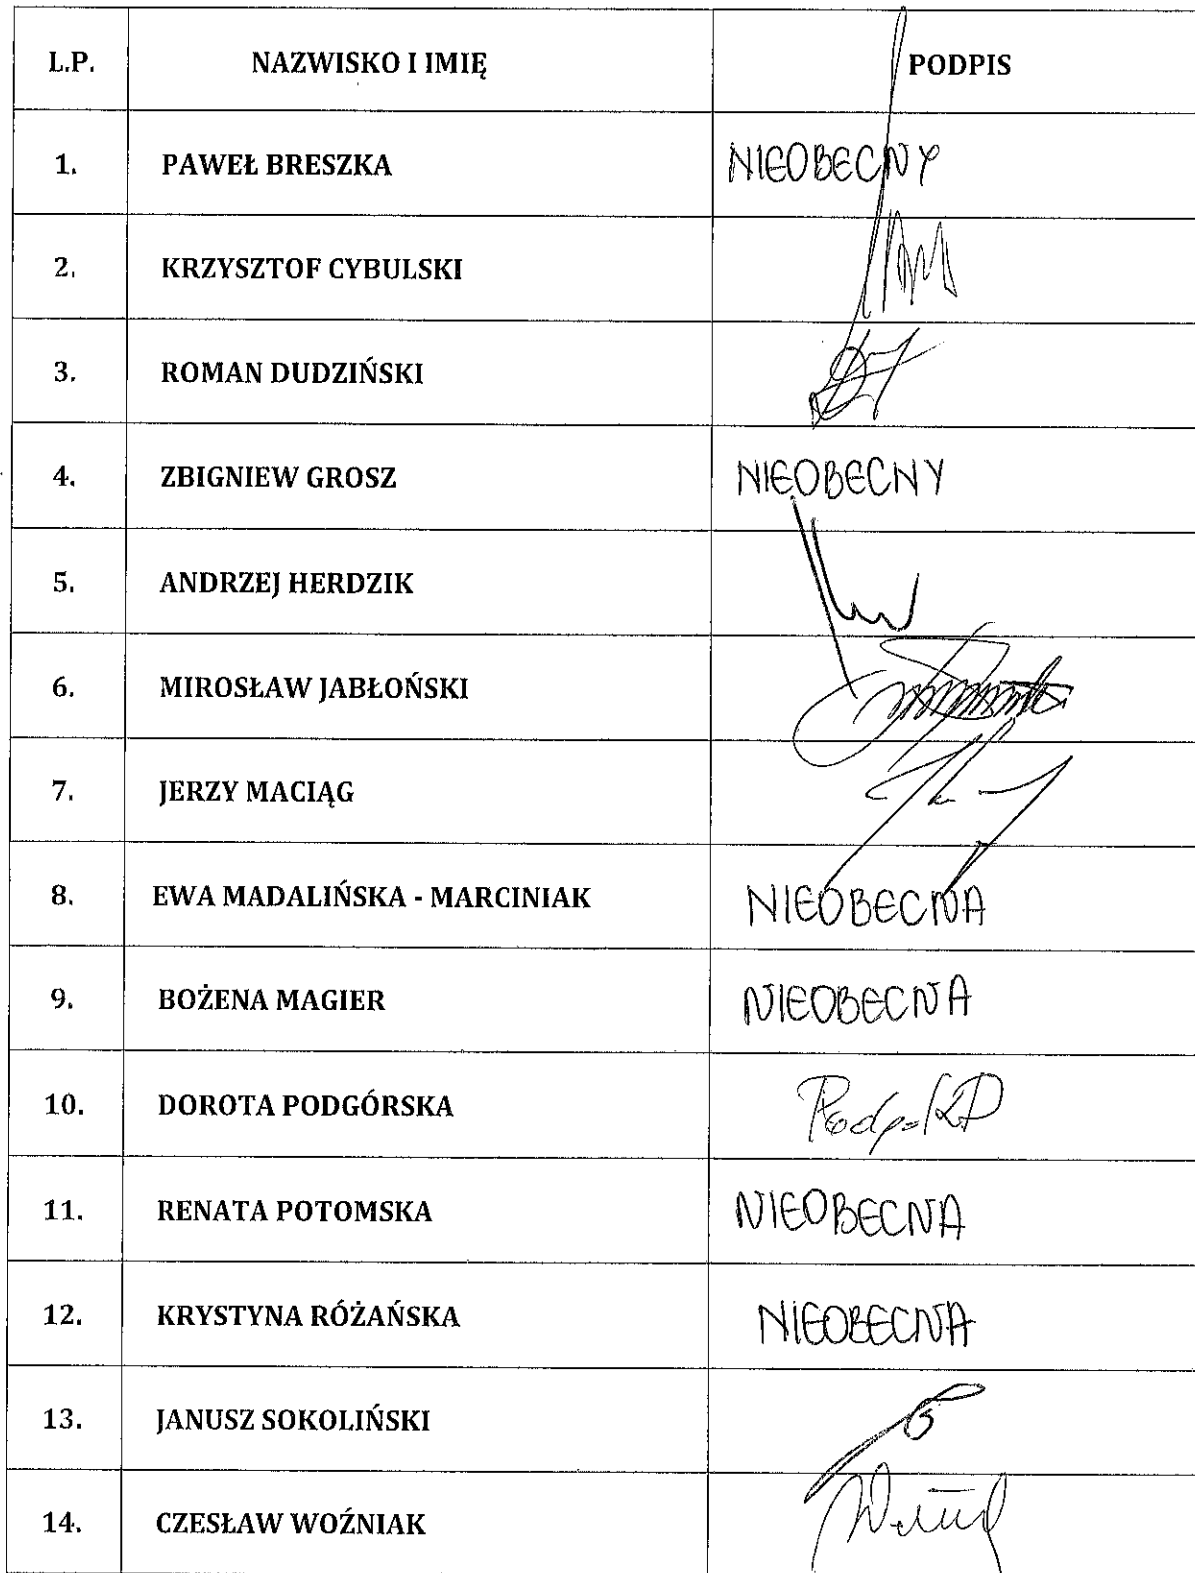 L.P. NAZWISKO I IMIĘ PODPIS
1. PAWEŁ BRESZKA NIEOBECNY
2. KRZYSZTOF CYBULSKI
3. ROMAN DUDZIŃSKI
4. ZBIGNIEW GROSZ NIEOBECNY
5. ANDRZEJ HERDZIK
6. MIROSŁAW JABŁOŃSKI
7. JERZY MACIĄG
8. EWA MADALIŃSKA - MARCINIAK NIEOBECNA
9. BOŻENA MAGIER NIEOBECNA
10. DOROTA PODGÓRSKA
11. RENATA POTOMSKA NIEOBECNA
12. KRYSTYNA RÓŻAŃSKA NIEOBECNA
13. JANUSZ SOKOLIŃSKI
14. CZESŁAW WOŹNIAK